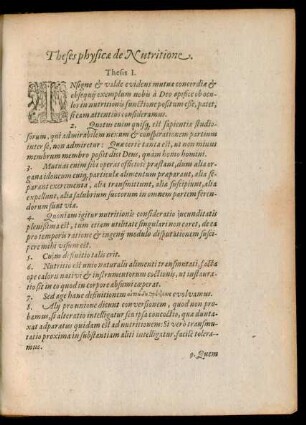 Theses physicæ de Nutritione.
Thesis I.
INsigne & valde evidens mutuæ concordiæ &
obsequij exemplum nobis à Deo opifice ob ocu-
los in nutritionis functione positum esse, patet,
si eam attentius consideramus.
2. Quotus enim quisq́; est sapientiæ studio-
sorum, qui admirabilem nexum & confœderationem partium
inter se, non admiretur: Quæ certè tanta est, ut non mium
membrum membro possit dici Deus, quam homo homini.
3. Mutuas enim sibi operas officiiq́; præstant, alia alteram
organa: aliæ cuiq; parti, competens alimentum præparant, alia se-
parant excrementa, alia transmittunt, alia suscipiunt, alia
expellunt, alia salubrium succorum in omnem partem ferun-
dorum sunt via.
4. Quoniam igitur nutritionis consideratio iucunditatis
plenissima est, tum etiam utilitate singulari non caret, de ea
pro temporis ratione & ingenij modulo disputationem susci-
pere mihi visum est.
5. Cuius definitio talis erit.
6. Nutritio est unio naturalis alimenti transmutati, facta
ope caloris nativi & instrumentorum coctionis, ut instaura-
tio sit in eo quod in corpore absumi caperat.
7. Sed age hanc definitionem evolvamus.
8. Aliq́; pronitione dicunt conversionem, quod non pro-
bamus, si alteratio intelligatur seu ipsa concoctio, qua dunta-
xat adparatus quidam est ad nutritionem: Si verò transmu-
tatio proxima in substantiam aliti intelligatur, facilè tolera-
mus.
9. Quem